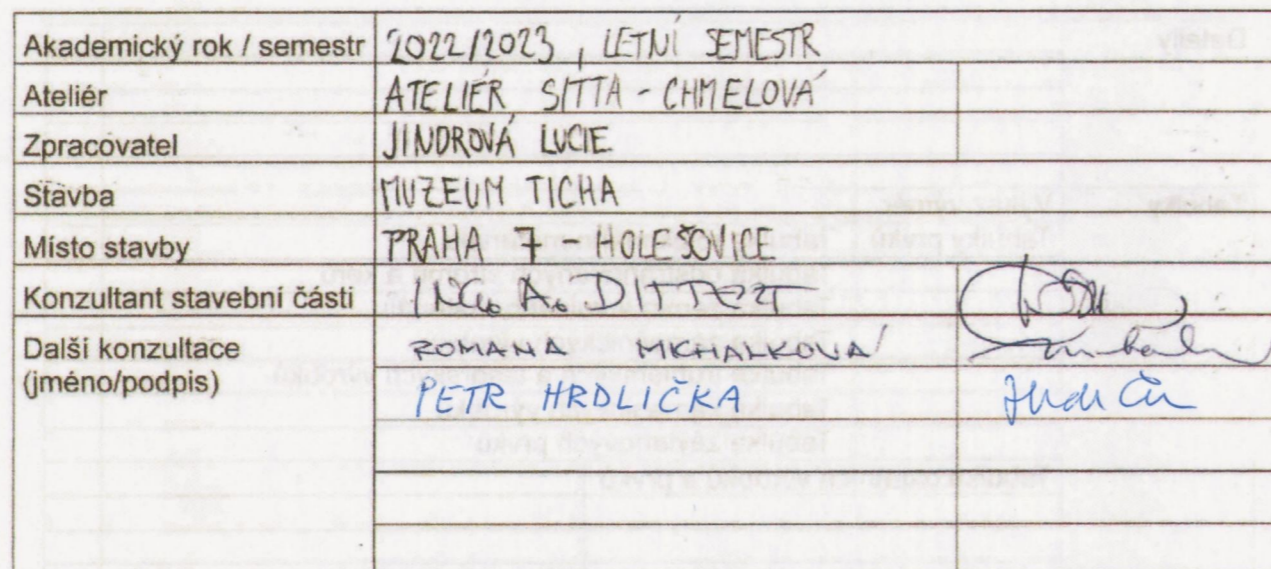 Akademický rok / semestr 2022/2023, LETNÍ SEMESTR
Ateliér ATELIÉR SITTA - CHMELOVÁ
Zpracovatel JINDROVÁ LUCIE
Stavba MUZEUM TICHA
Místo stavby PRAHA 7 - HOLEŠOVICE
Konzultant stavební části A.
Další konzultace MICHALKOVÁ
(jméno/podpis) PETR HRDLIČKA